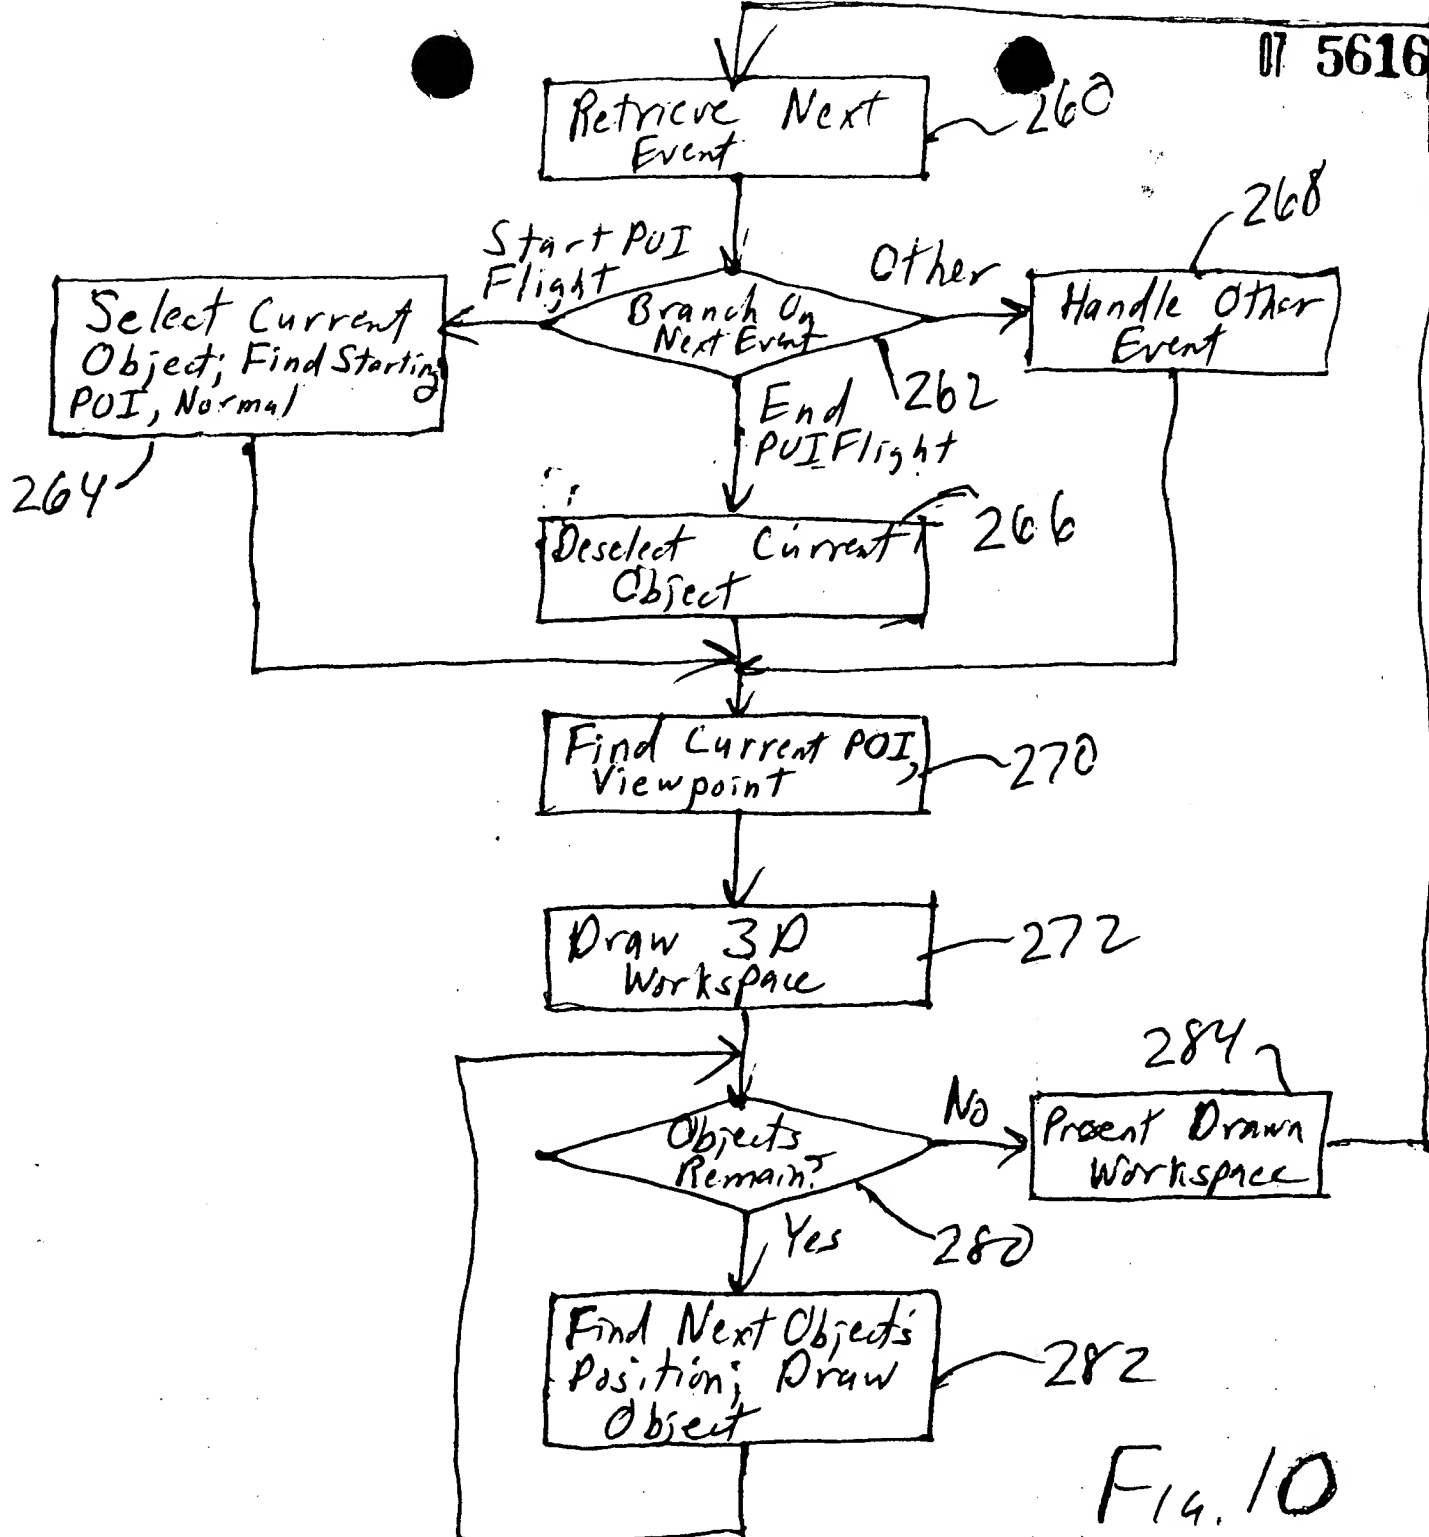 07 5616
Retrieve Next
Event
260
Start POI
Flight
Other
268
Select Current
Object; Find Starting
POI, Normal
264
Branch On
Next Event
262
Handle Other
Event
End
POI Flight
Deselect Current
Object
266
Find Current POI,
Viewpoint
270
Draw 3D
Workspace
272
284
Objects
Remain?
280
No
Present Drawn
Workspace
Yes
Find Next Object's
Position; Draw
Object
282
Fig. 10